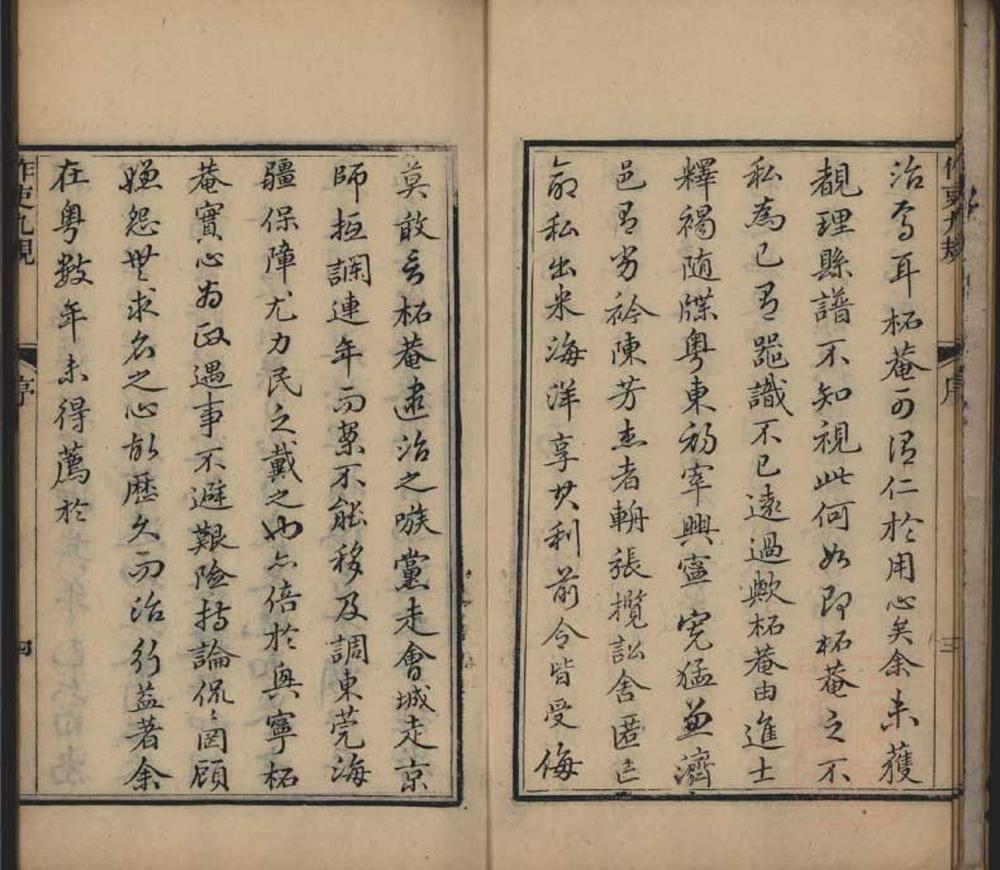 治焉耳柘菴可謂仁於用心矣余未獲
覩理縣譜不知視此何如即柘菴之不
私為己有器識不已遠過歟柘菴由進士
釋褐隨牒粵東初宰興寧寬猛並濟
邑有劣衿陳芳杰者輈張攬訟舍匿亡
命私出米海洋享其利前令皆受侮
莫敢言柘菴逮治之嗾黨走會城走京
師抵讕連年而案不能移及調東莞海
疆保障尤力民之戴之也亦倍於興寧柘
菴實心為政遇事不避艱險持論侃侃罔顧
嫌怨無求名之心故歷久而治行益著余
在粵數年未得薦於
作吏九規
序
三
作吏九規
序
四